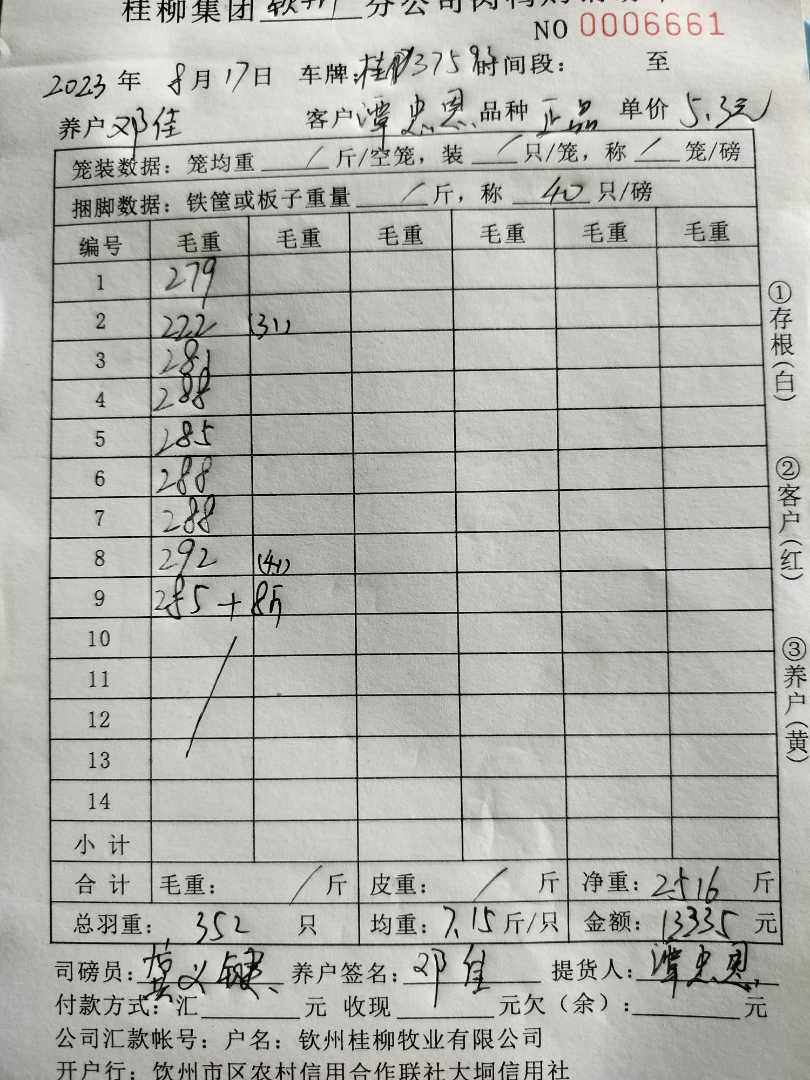 桂柳集团钦州分公司肉鸭购销
NO 0006661
2023年 8月17日 车牌: 时间段: 至
养户邓佳 客户谭忠恩 品种 正品 单价 5.3元
笼装数据: 笼均重 / 斤/空笼, 装 / 只/笼, 称 / 笼/磅
捆脚数据: 铁筐或板子重量 / 斤, 称 40 只/磅
编号 毛重 毛重 毛重 毛重 毛重 毛重
1 279
2 222 (31)
3 281
4 288
5 285
6 288
7 288
8 292 (41)
9 285 + 8斤
10
11
12
13
14
小计
合计 毛重: / 斤 皮重: / 斤 净重: 2516 斤
总羽重: 352 只 均重: 7.15 斤/只 金额: 13335 元
司磅员: 养户签名: 邓佳 提货人: 谭忠恩
付款方式: 汇 元 收现 元欠(余): 元
公司汇款帐号: 户名: 钦州桂柳牧业有限公司
开户行: 钦州市区农村信用合作联社大垌信用社
①存根(白)
②客户(红)
③养户(黄)